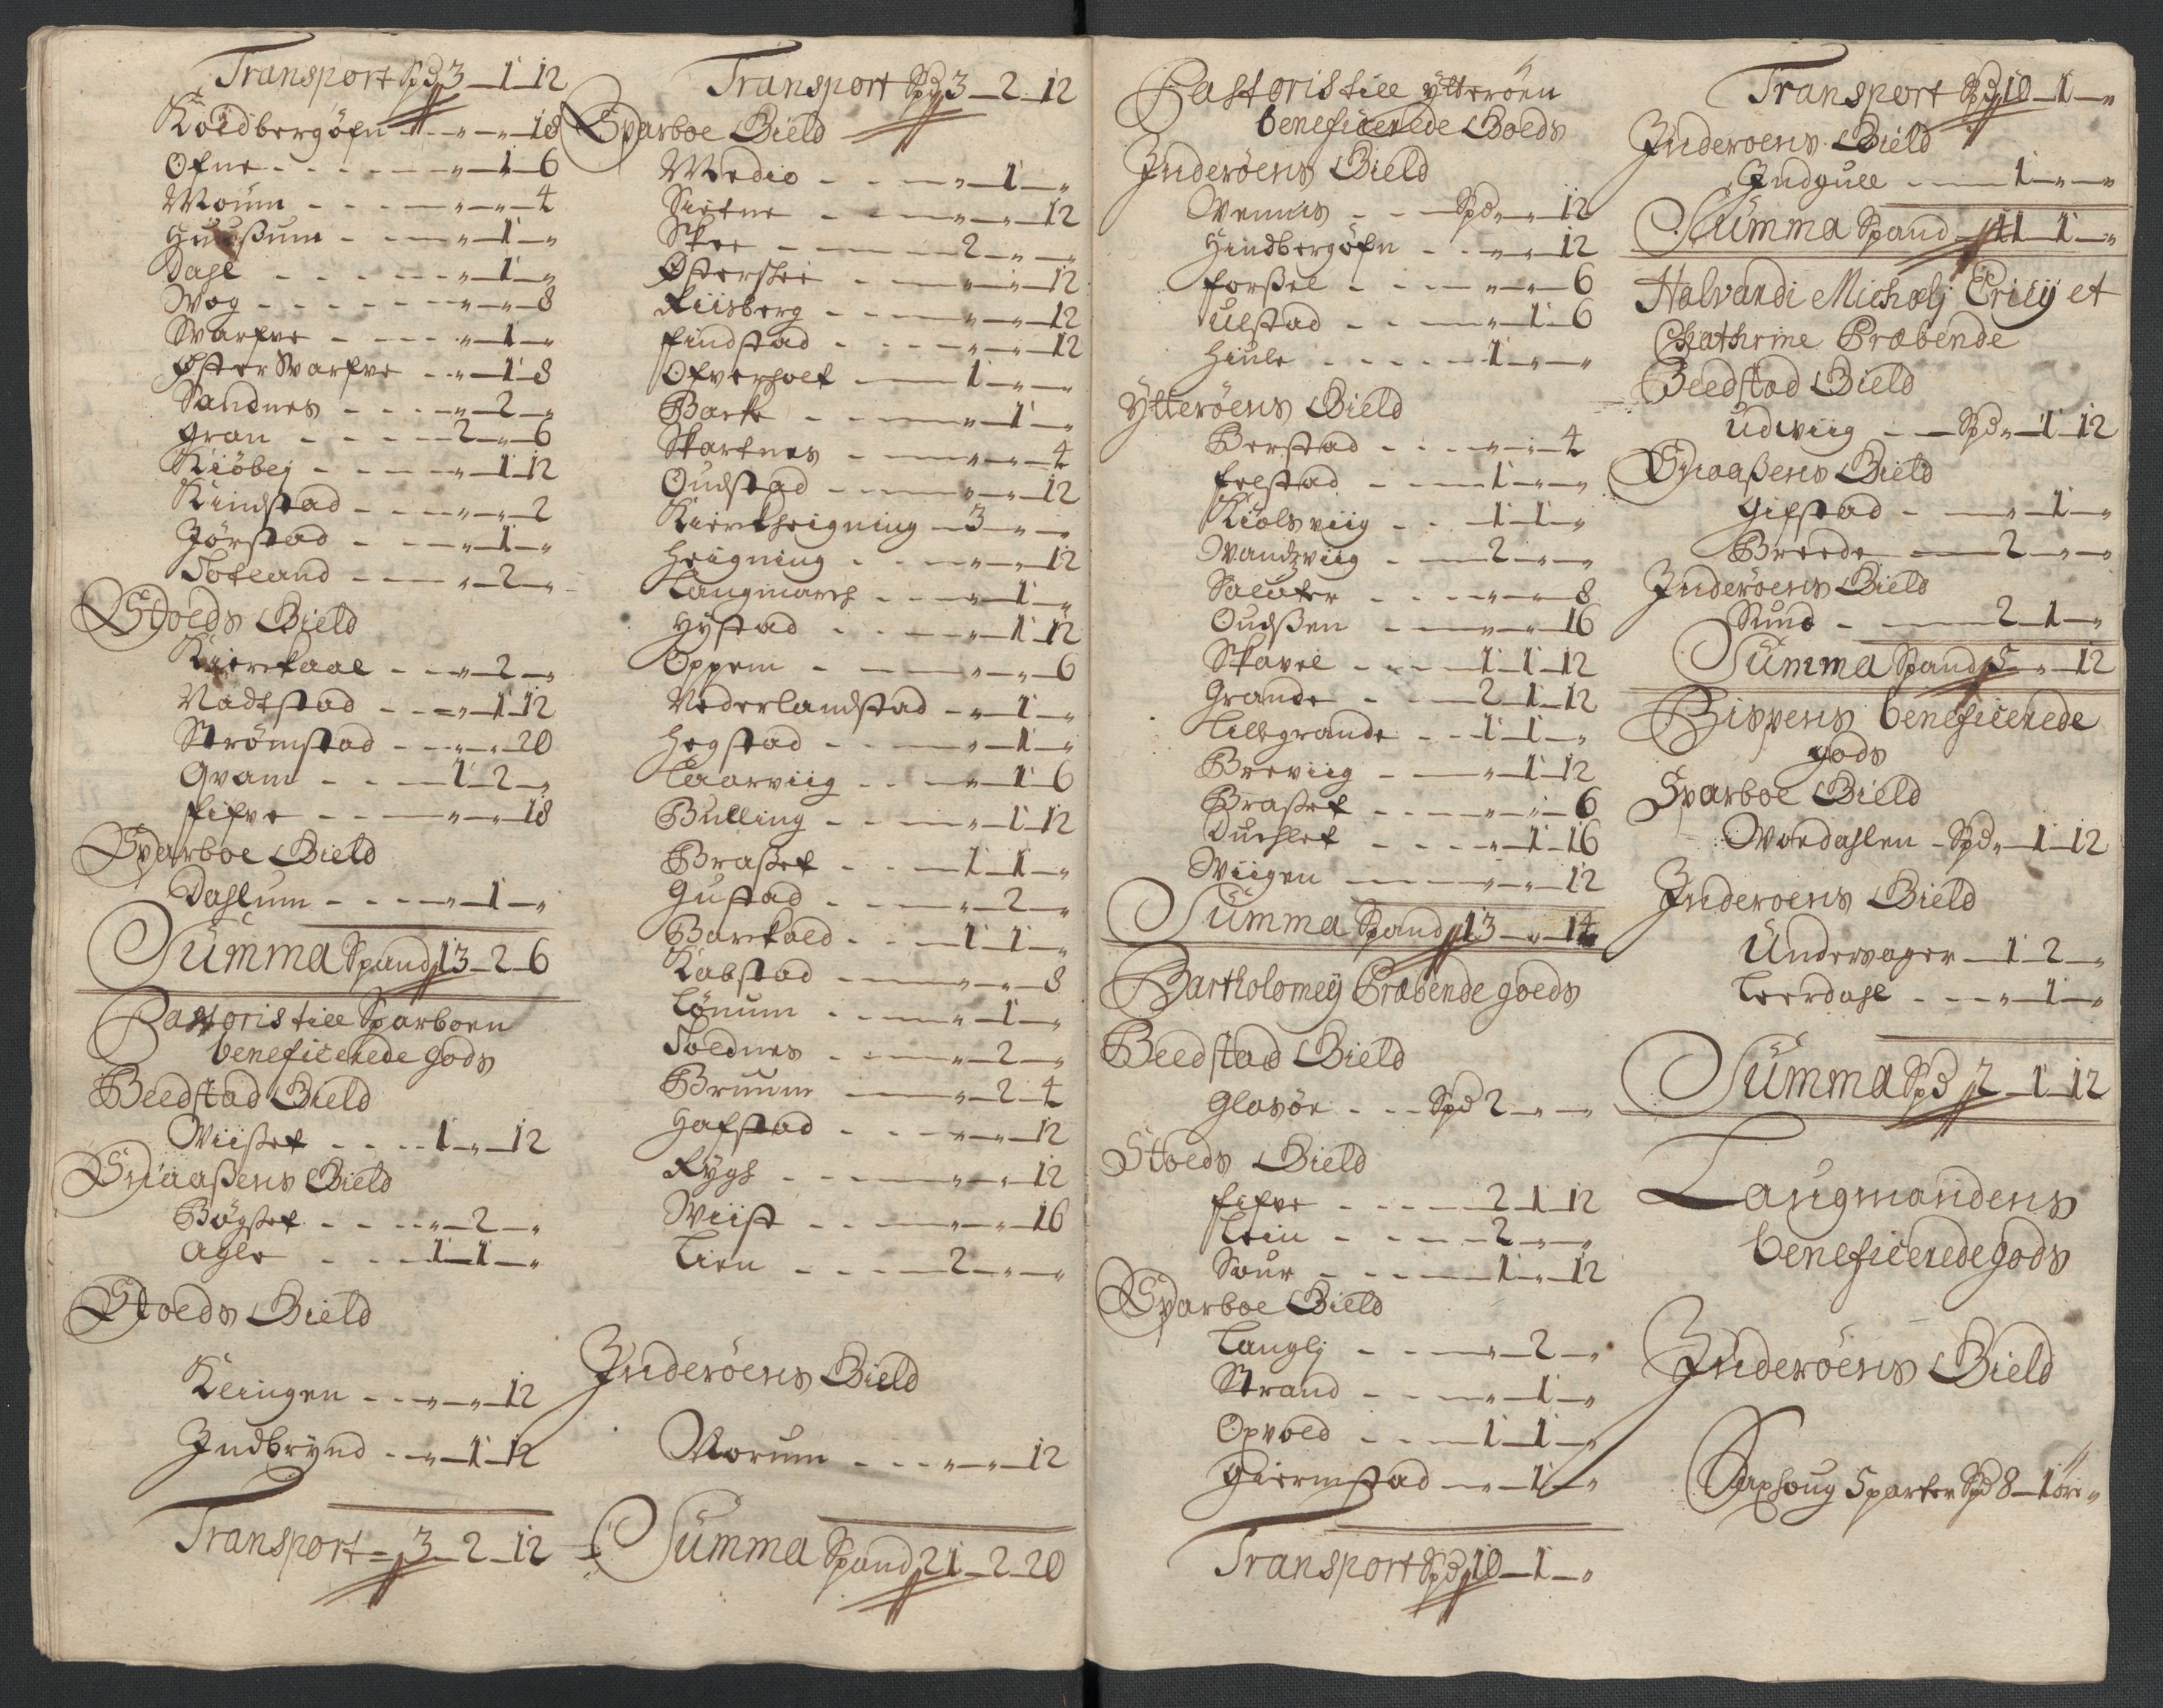 Transport Spd 3 – 1 – 12
Koldbergöfn - - „ – „ – 18
Ofne - - - - „ – 1 – 6
Moum - - - „ – „ – 4
Huußum - - - „ – 1 – „
Dahl - - - - „ – 1 – „
Wog - - - - „ – „ – 8
Svarfve - - - „ – 1 – „
Øster Svarfve - - „ – 1 – 8
Sandnes - - - „ – 2 – „
Gran - - - - 2 – „ – 6
Kiöbej - - - „ – 1 – 12
Kindstad - - - „ – „ – 2
Jörstad - - - „ – 1 – „
Sotland - - - „ – 2 – „
Stoeds Gield
Kierkaal - - „ – 2 – „
Nadtstad - - „ – 1 – 12
Strömstad - - „ – „ – 20
Qvam - - - 1 – 2 – „
fifve - - - „ – „ – 18
Sparboe Gield
Dahlum - - - „ – 1 – „
Summa Spand 13 – 2 – 6
Pastoris till Sparboen
beneficerede gods
Beedstad Gield
Wiiset - - - 1 – „ – 12
Snaaßens Gield
Bögset - - - „ – 2 – „
Agle - - - 1 – 1 – „
Stoeds Gield
Klingen - - „ – „ – 12
Indbrynd - - „ – 1 – 12
Transport – 3 – 2 – 12
Transport Spd 3 – 2 – 12
Sparboe Gield
Medio - - - „ – 1 – „
Sietne - - - „ – „ – 12
Skee - - - 2 – „ – „
Østerskei - - „ – „ – 12
Riisberg - - - „ – „ – 12
findstad - - - „ – „ – 12
Ofverholt - - 1 – „ – „
Bark - - - „ – 1 – „
Skartnes - - - „ – „ – 4
Oudstad - - - „ – „ – 12
Kierkheigning – 3 – „ – „
Heigning - - - „ – „ – 12
Langmarch - - - „ – 1 – „
Hystad - - - „ – 1 – 12
Oppem - - - „ – „ – 6
Nederlandstad - „ – 1 – „
Hegstad - - - „ – 1 – „
Laarviig - - - „ – 1 – 6
Bulling - - - „ – 1 – 12
Braset - - - 1 – 1 – „
Gustad - - - „ – 2 – „
Barkald - - - 1 – 1 – „
Kabstad - - - „ – „ – 8
Lönum - - - „ – 1 – „
Soldnes - - - „ – 2 – „
Bruum - - - „ – 2 – 4
Hafstad - - - „ – „ – 12
Rygh - - - „ – „ – 12
Wiist - - - „ – „ – 16
Lien - - - 2 – „ – „
Inderöens Gield
Norum - - - „ – „ – 12
Summa Spand 21 – 2 – 20
Pastoris till Ytteröen
beneficerede Goeds
Inderöens Gield
Vennis - - Spd „ – „ – 12
Hindbergöfn - - „ – „ – 12
forßel - - - „ – „ – 6
Ulstad - - - „ – 1 – 6
Hiule - - - 1 – „ – „
Ytteröens Gield
Berstad - - - „ – „ – 4
felstad - - - 1 – „ – „
Kiölsviig - - 1 – 1 – „
Vandzviig - - 2 – „ – „
Saluter - - - „ – „ – 8
Oudßen - - - „ – „ – 16
Skavel - - - 1 – 1 – 12
Grande - - - 2 – 1 – 12
Lillgrande - - 1 – 1 – „
Breviig - - - „ – 1 – 12
Braset - - - „ – „ – 6
Duehlet - - - „ – 1 – 16
Wiigen - - - „ – „ – 12
Summa Spand 13 – „ – 14
Bartholomej Præbende goeds
Beedstad Gield
Glosöe - - - Spd 2 – „ – „
Stoeds Gield
fifve - - - 2 – 1 – 12
Lein - - - 2 – „ – „
Vour - - - 1 – „ – 12
Sparboe Gield
Langlj - - - „ – 2 – „
Strand - - - „ – 1 – „
Opvold - - - 1 – 1 – „
Giermstad - - „ – 1 – „
Transport Spd 10 – 1 – „
Transport Spd 10 – 1 – „
Inderoens Gield
Indgull - - - 1 – „ – „
Summa Spand 11 – 1 – „
Halvandi Michælj Ericij et
Chathrine Præbende
Beedstad Gield
Udwiig - - Spd „ – 1 – 12
Snaaßens Gield
Gifstad - - - „ – 1 – „
Breede - - - 2 – „ – „
Inderöens Gield
Sund - - - 2 – 1 – „
Summa Spand 5 – „ – 12
Bispens beneficerede
gods
Sparboe Gield
Wordahlen – Spd „ – 1 – 12
Inderoens Gield
Undersager – 1 – 2 – „
Leerdahl - - - „ – 1 – „
Summa Spd 2 – 1 – 12
Laugmandens
beneficerede gods
Inderöens Gield
Saxhoug 5 parter Spd 8 – 1 öri „